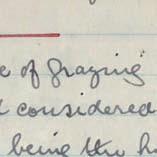 e of grazing
d considered
being the h